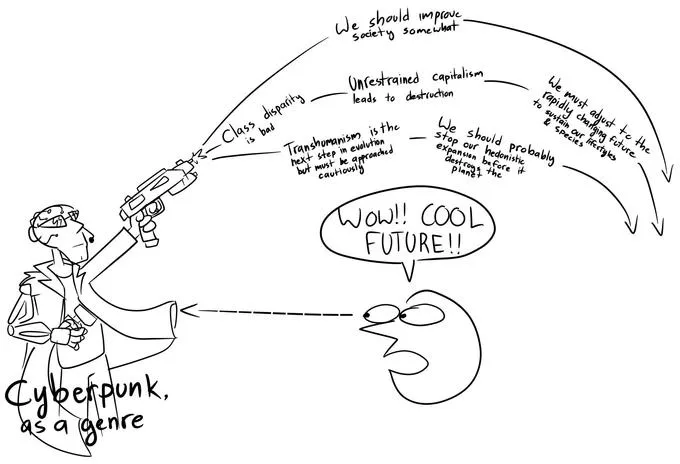 We should improve
society somewhat
Unrestrained capitalism
leads to destruction
We must adjust to the
rapidly changing future
to sustain our lifestyles
& species
Class disparity
is bad
Transhumanism is the
next step in evolution
but must be approached
cautiously
We should probably
stop our hedonistic
expansion before it
destroys the
planet
WOW!! COOL
FUTURE!!
Cyberpunk,
as a genre